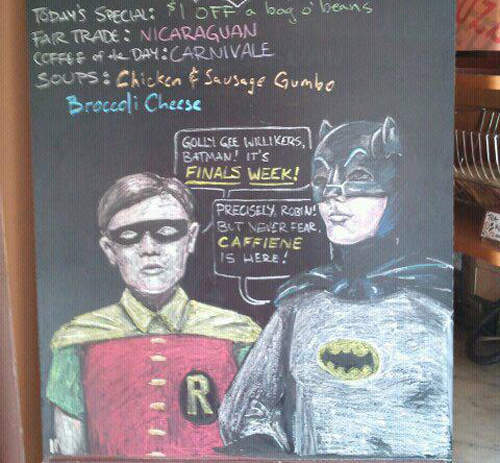 TODAY'S SPECIAL: $1 OFF a bag o' beans
FAIR TRADE: NICARAGUAN
COFFEE of the DAY: CARNIVALE
SOUPS: Chicken & Sausage Gumbo
Broccoli Cheese
GOLLY GEE WILLIKERS,
BATMAN! IT'S
FINALS WEEK!
PRECISELY, ROBIN!
BUT NEVER FEAR,
CAFFIENE
IS HERE!
R